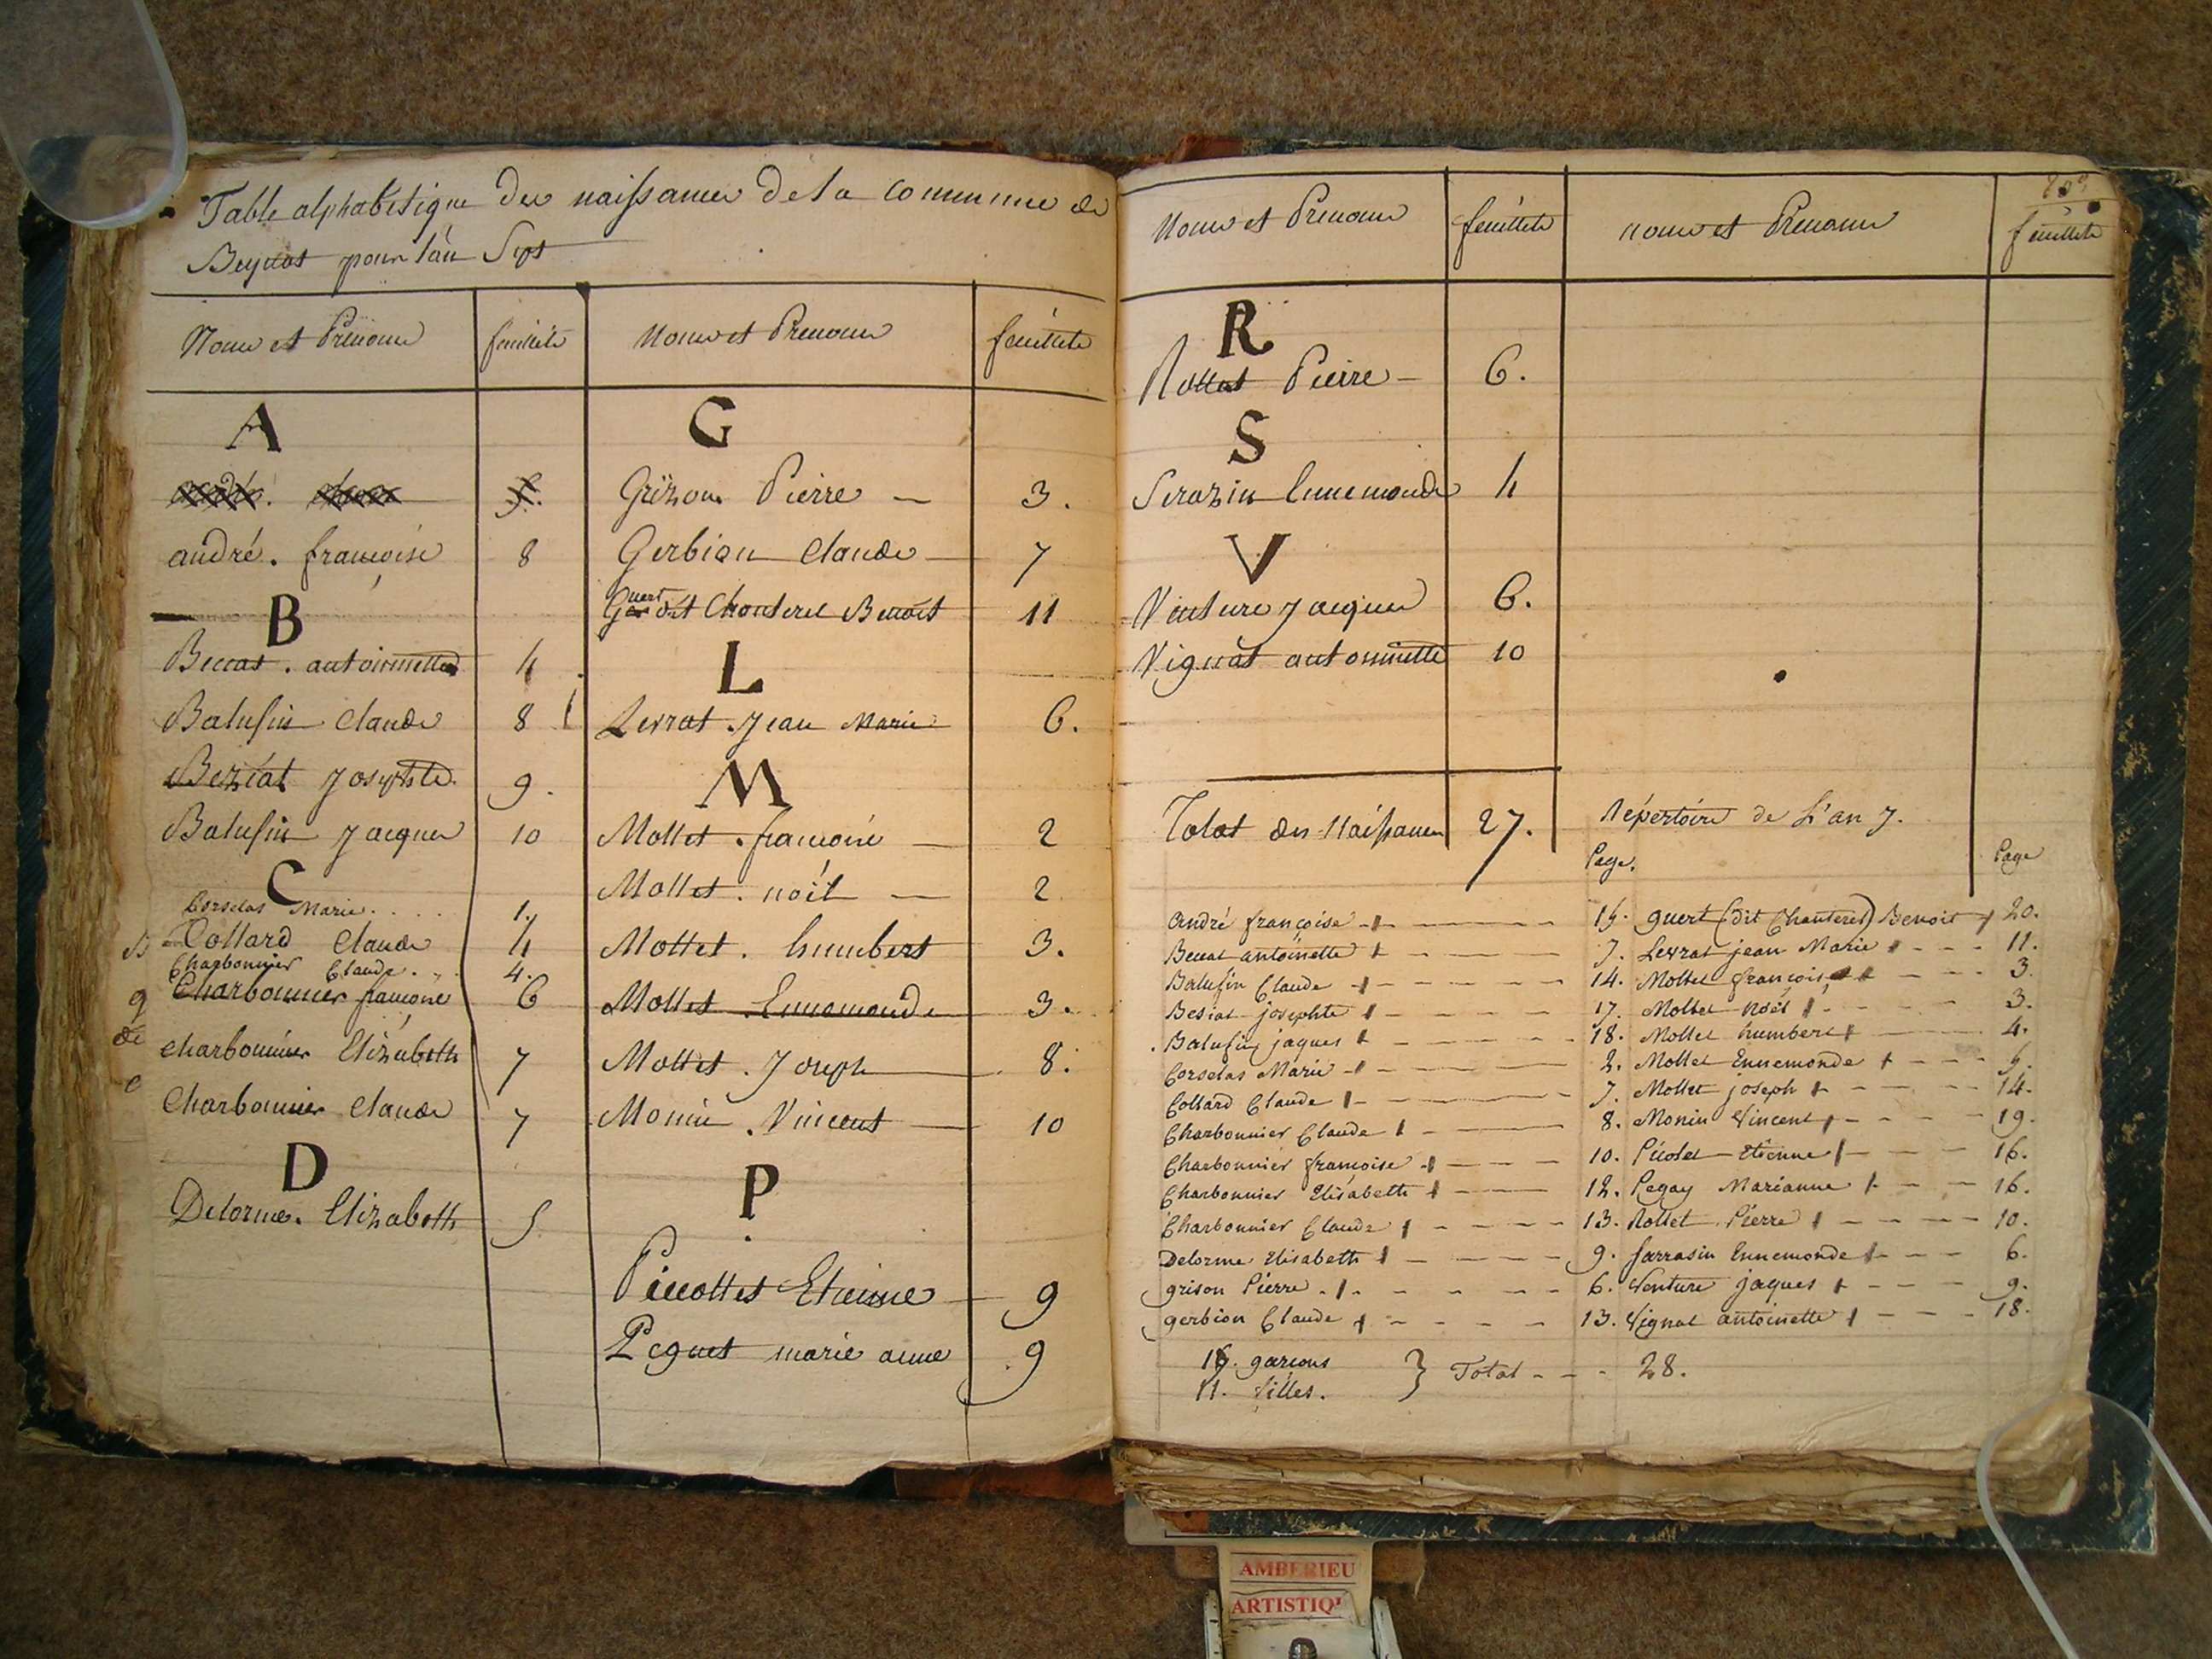 Table alphabetique des naissances de la commune de
Beynost pour l'an Sept
Noms et Prenoms feuillets Noms et Prenoms feuillets
A
andré. françoise 8
B
Beccat. antoinette 4
Balufin Claude 8
Beziat Josephte 9.
Balufin Jacques 10
C
Corselas Marie.... 1.
Collard Claude 4
Charbonnier Claude... 4.
Charbonnier françoise 6
charbonnier Elizabeth 7
Charbonnier Claude 7
D
Delorme. Elizabeth 5
G
Grizon Pierre — 3.
Gerbion Claude — 7
Guert dit Chanterel Benoit 11
L
Levrat. Jean Marie 6.
M
Mollet. francoise — 2
Mollet. noël — 2
Mollet. humbert 3.
Mollet Ennemonde 3.
Mollet. Joseph 8.
Monin. Vincent — 10
P
Piccollet Etienne — 9
Peguet marie anne 9
Noms et Prenoms feuillets noms et Prenoms feuillets
R
Rollet Pierre — 6.
S
Serazin Ennemonde 4
V
Venture Jacques 6.
Vignat antoinette 10
Total des Naissances 27.
Répertoire de L'an 7.
Page. Page
André françoise 15. guert (dit Chanterel) Benoit 20.
Beccat antoinette 7. Levrat jean Marie 11.
Balufin Claude 14. Mollet françoise 3.
Besiat josephte 17. Mollet Noël 3.
Balufin jaques 18. Mollet humbert 4.
Corselas Marie 2. Mollet Ennemonde 5.
Collard Claude 7. Mollet joseph 14.
Charbonnier Claude 8. Monin Vincent 19.
Charbonnier françoise 10. Picolet Etienne 16.
Charbonnier Elisabeth 12. Pegay Marianne 16.
Charbonnier Claude 13. Rollet Pierre 10.
Delorme Elisabeth 9. Sarrasin Ennemonde 6.
grison Pierre 6. Venture jaques 9.
gerbion Claude 13. Vignat antoinette 18.
17. garçons
11. filles. } Total - - - 28.
AMBERIEU
ARTISTIQ